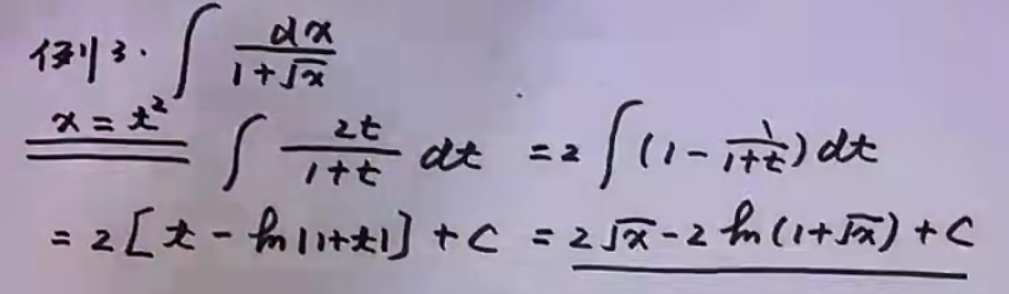 例3. ∫ dx/(1+√x)
x=t² ∫ 2t/(1+t) dt = 2∫(1 - 1/(1+t))dt
= 2[t - ln|1+t|] + C = 2√x - 2ln(1+√x) + C